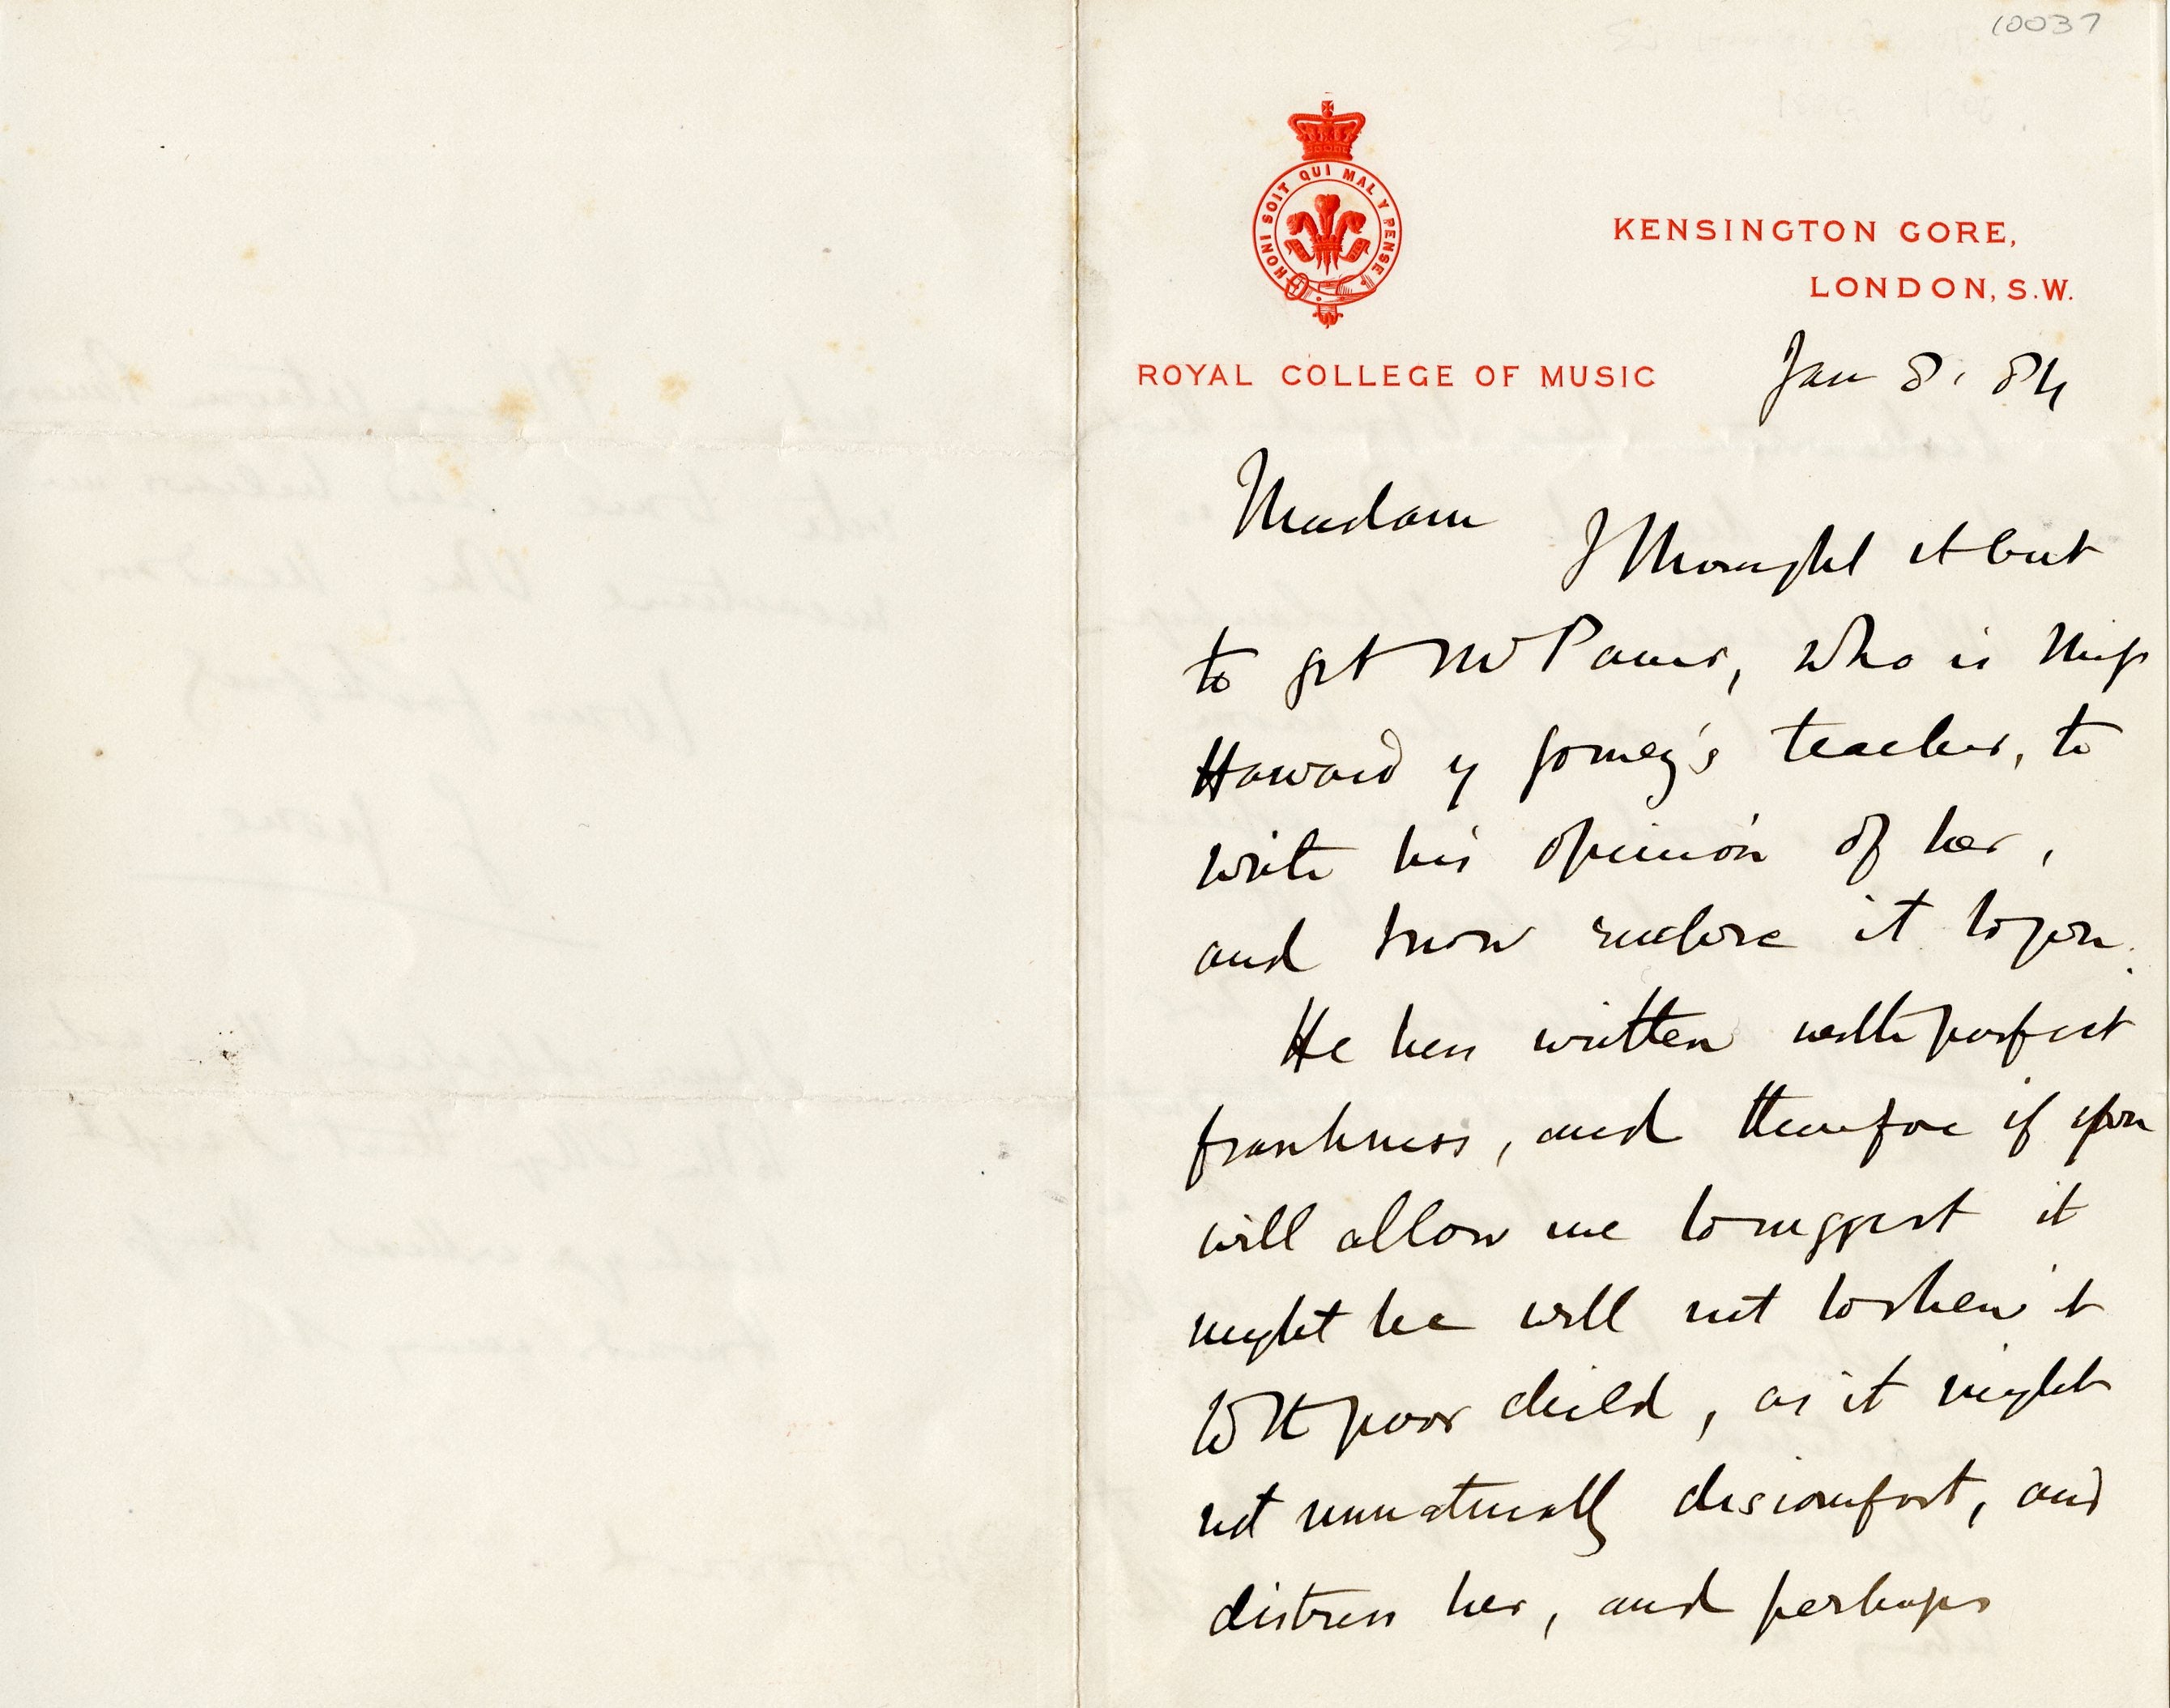 10037
HONI SOIT QUI MAL Y PENSE
KENSINGTON GORE,
LONDON, S.W.
ROYAL COLLEGE OF MUSIC
Jan 8. 84
Madam
I thought it best
to get Mr Pauer, who is Miss
Howard y Gomez's teacher, to
write his opinion of her,
and now enclose it to you.
He has written with perfect
frankness, and therefore if you
will allow me to suggest it
might be well not to shew it
to the poor child, as it might
not unnaturally discomfort, and
distress her, and perhaps